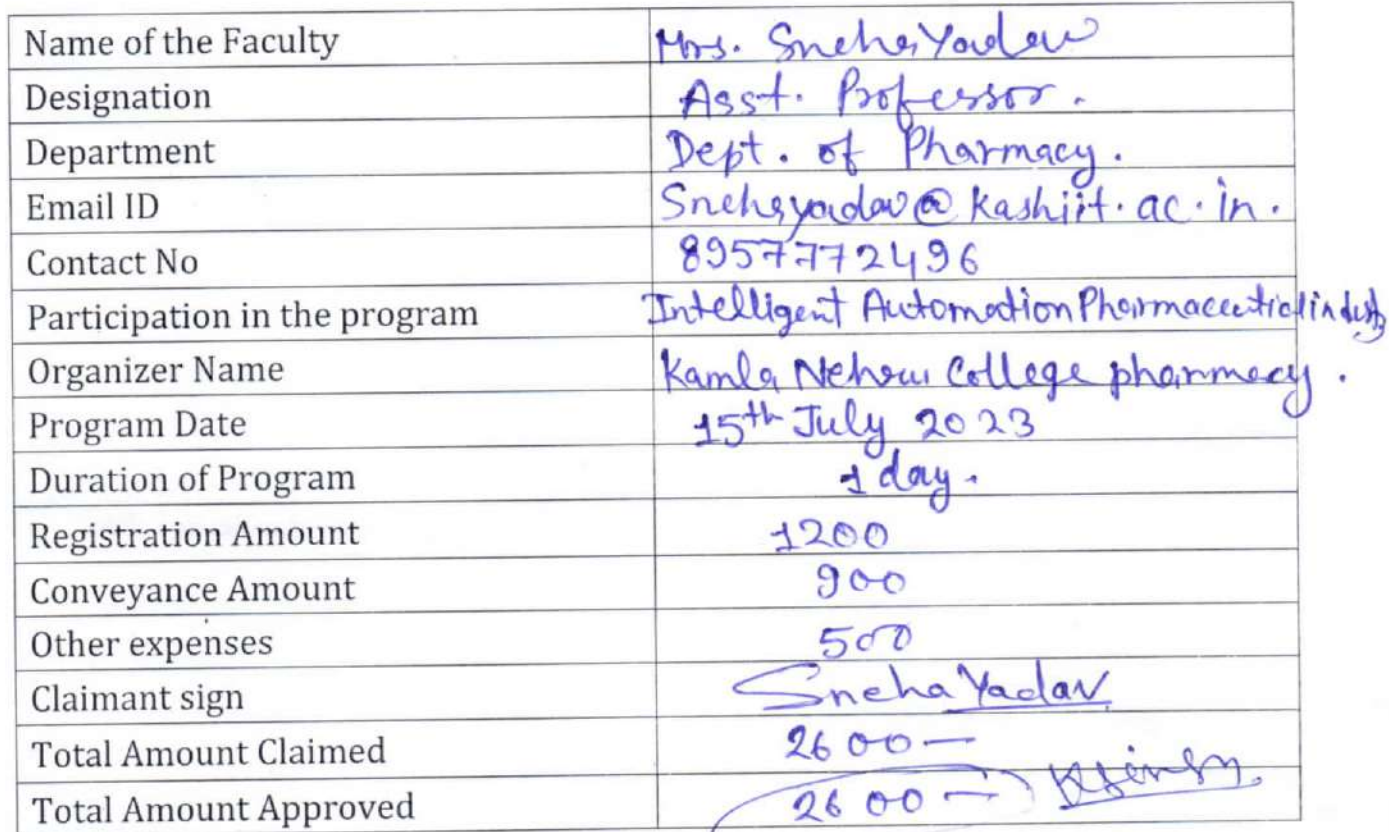 Name of the Faculty Mrs. Sneha Yadav
Designation Asst. Professor.
Department Dept. of Pharmacy.
Email ID Snehayadav@kashiit.ac.in.
Contact No 8957772496
Participation in the program Intelligent Automation Pharmaceutical industry
Organizer Name Kamla Nehru College pharmacy.
Program Date 15th July 2023
Duration of Program 1 day.
Registration Amount 1200
Conveyance Amount 900
Other expenses 500
Claimant sign Sneha Yadav
Total Amount Claimed 2600-
Total Amount Approved 2600-